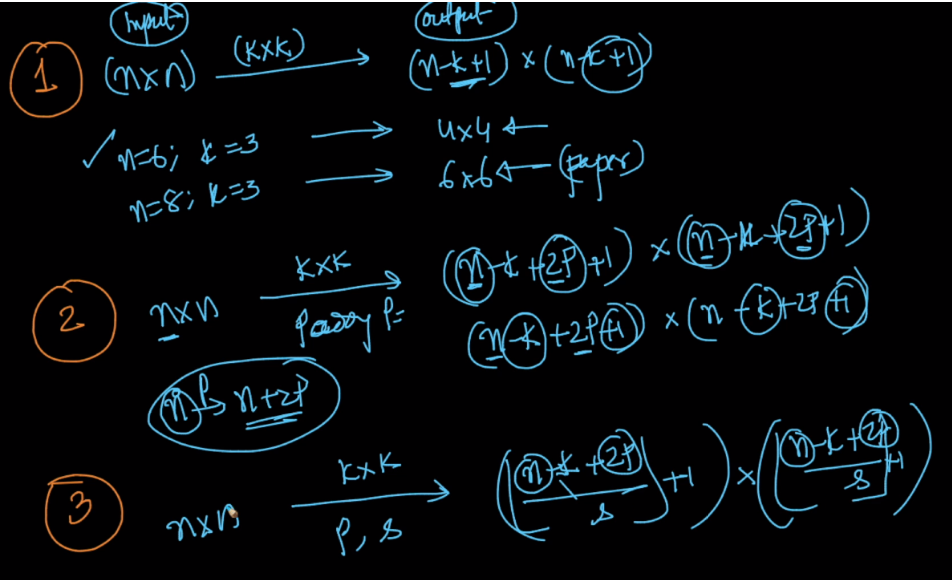 Input output
1 (n×n) (K×K) → (n-k+1) × (n-k+1)
✓ n=6; k=3 → 4×4 ←
n=8; k=3 → 6×6 ← (paper)
2 n×n K×K → (n-k+2P+1) × (n-k+2P+1)
P= (n-k+2P+1) × (n-k+2P+1)
n P→ n+2P
3 n×n K×K → ((n-k+2P)/s + 1) × ((n-k+2P)/s + 1)
P, s